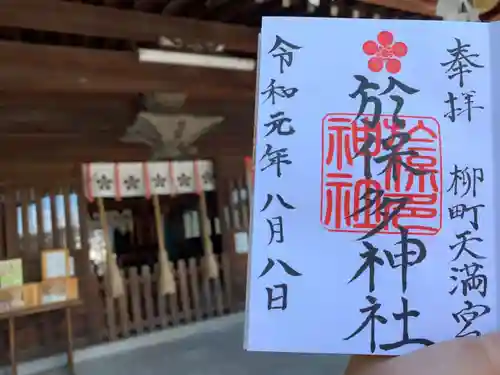 奉拝 柳町天満宮
於保多神社
神社
令和元年八月八日